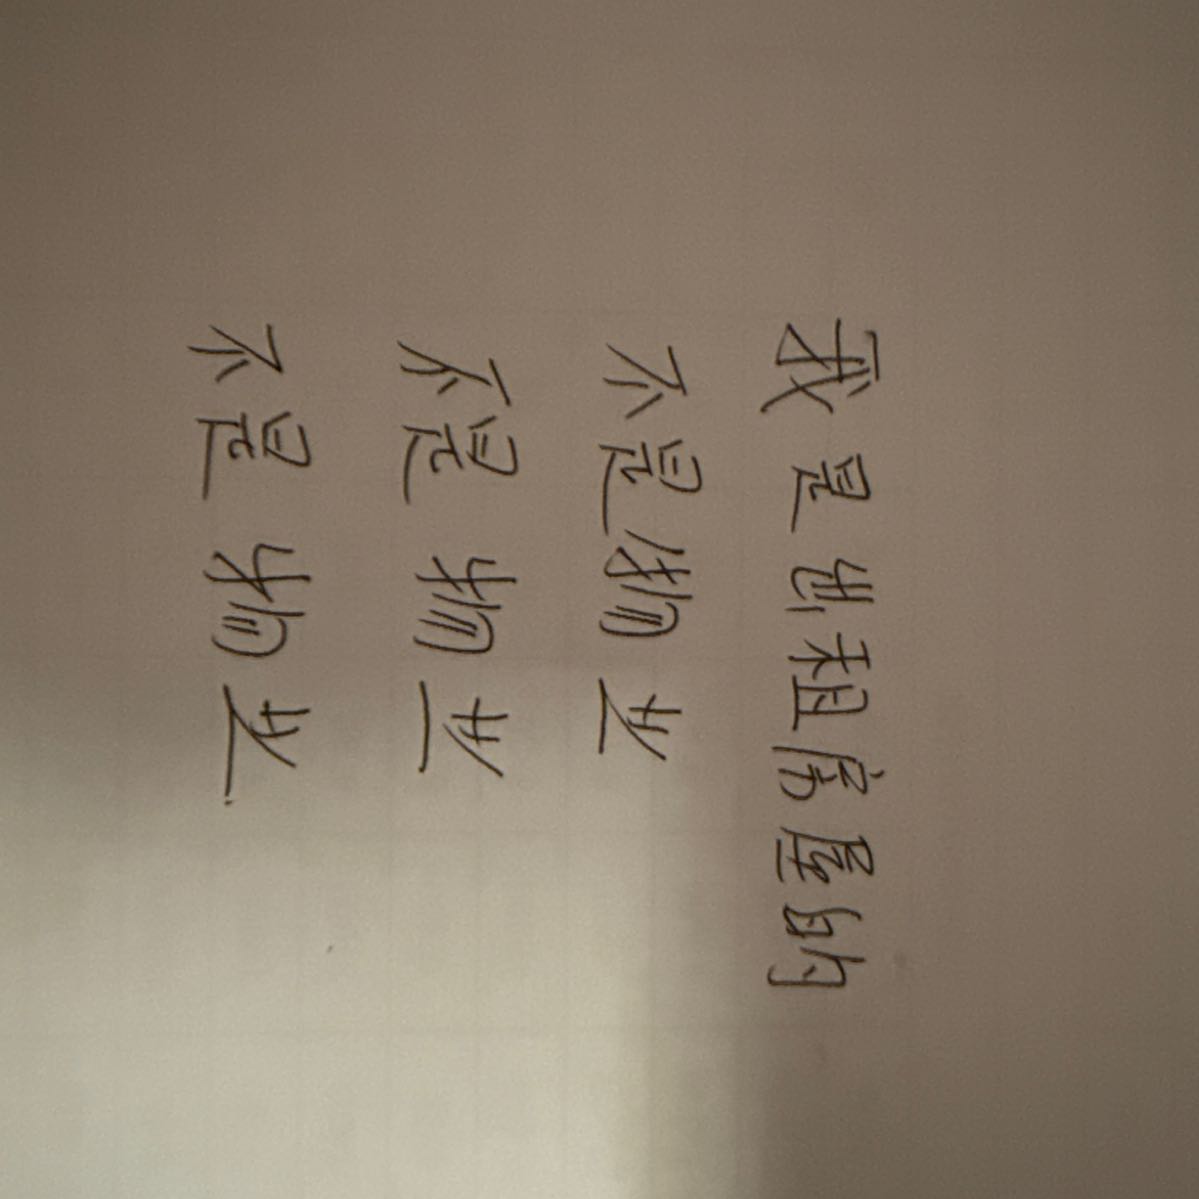 我是出租房屋的
不是物业
不是物业
不是物业